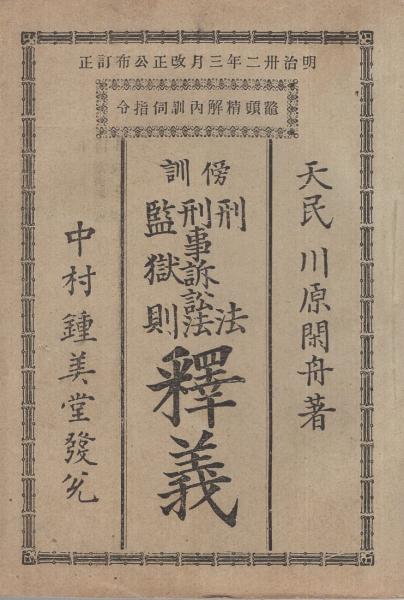 明治卅二年三月改正公布訂正
鼇頭精解內訓伺指令
天民 川原閑舟著
傍訓
刑法
刑事訴訟法
監獄則
釋義
中村鍾美堂發兌